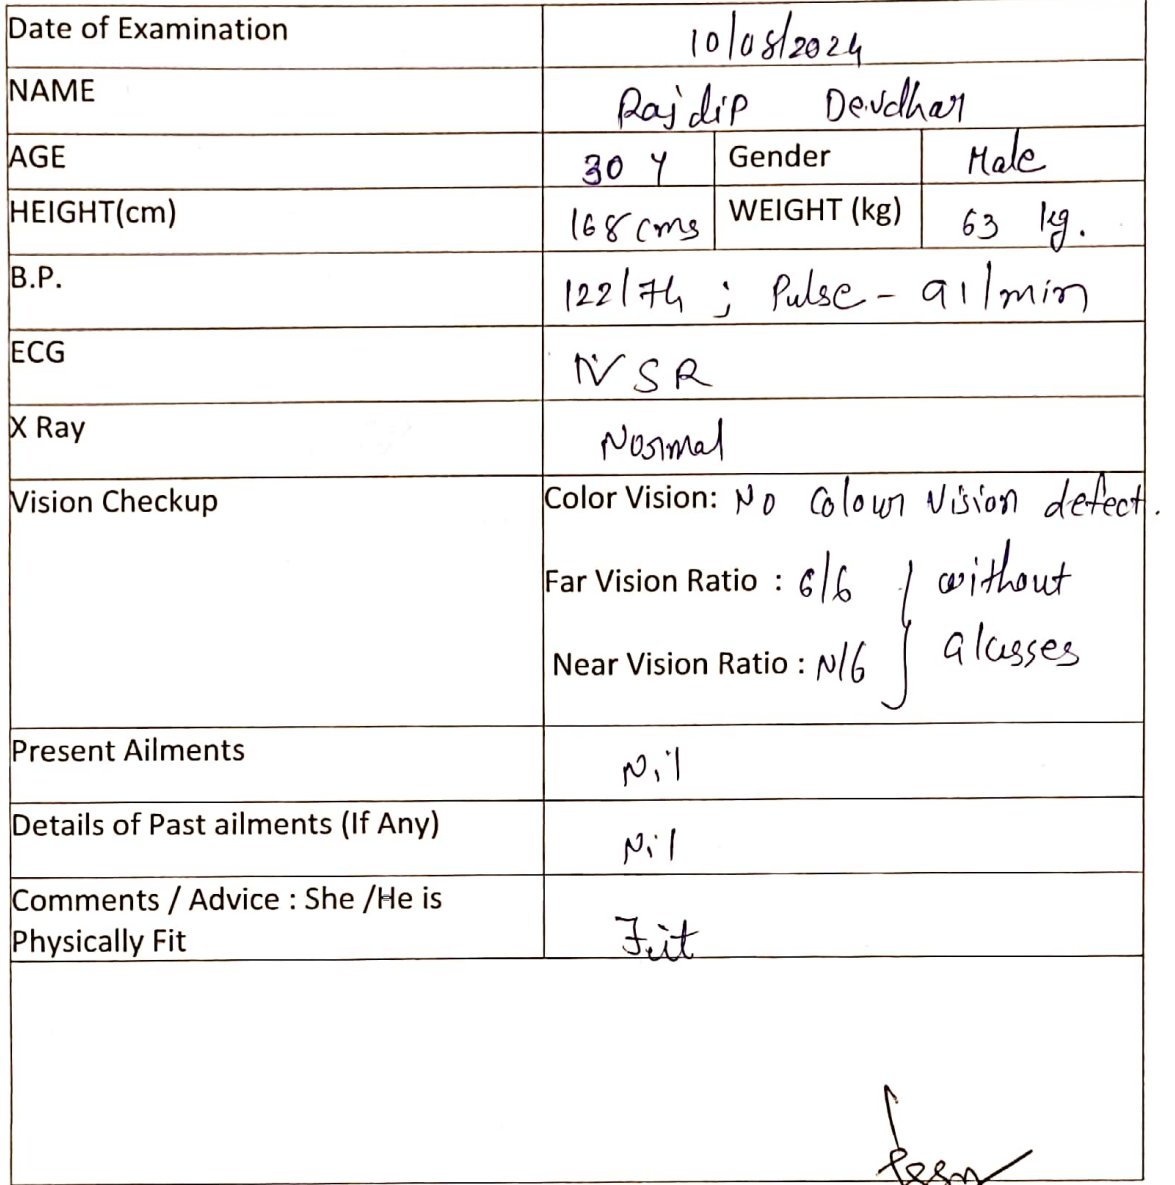 Date of Examination 10/08/2024
NAME Rajdip Devdhar
AGE 30 Y Gender Male
HEIGHT(cm) 168 cms WEIGHT (kg) 63 kg.
B.P. 122/74 ; Pulse - 91/min
ECG NSR
X Ray Normal
Vision Checkup Color Vision: No Colour Vision defect.
Far Vision Ratio : 6/6 without
Near Vision Ratio : N/6 glasses
Present Ailments Nil
Details of Past ailments (If Any) Nil
Comments / Advice : She /He is
Physically Fit Fit